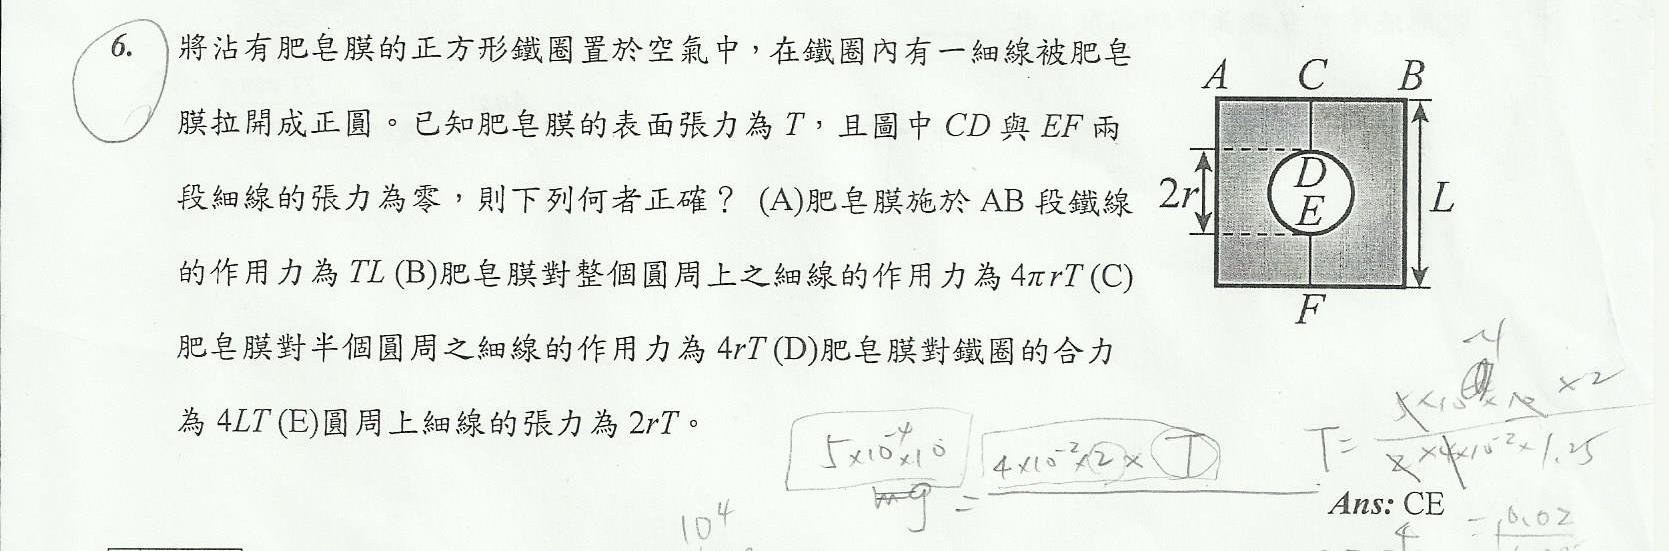 6. 將沾有肥皂膜的正方形鐵圈置於空氣中,在鐵圈內有一細線被肥皂
膜拉開成正圓。已知肥皂膜的表面張力為 T,且圖中 CD 與 EF 兩
段細線的張力為零,則下列何者正確? (A)肥皂膜施於 AB 段鐵線
的作用力為 TL (B)肥皂膜對整個圓周上之細線的作用力為 4πrT (C)
肥皂膜對半個圓周之細線的作用力為 4rT (D)肥皂膜對鐵圈的合力
為 4LT (E)圓周上細線的張力為 2rT。
A C B
D
2r
E
L
F
5×10⁻⁴×10
4×10⁻²×2×T
mg =
T=
×2
2×4×10⁻²×1.25
Ans: CE
10⁴
4
=
0.02